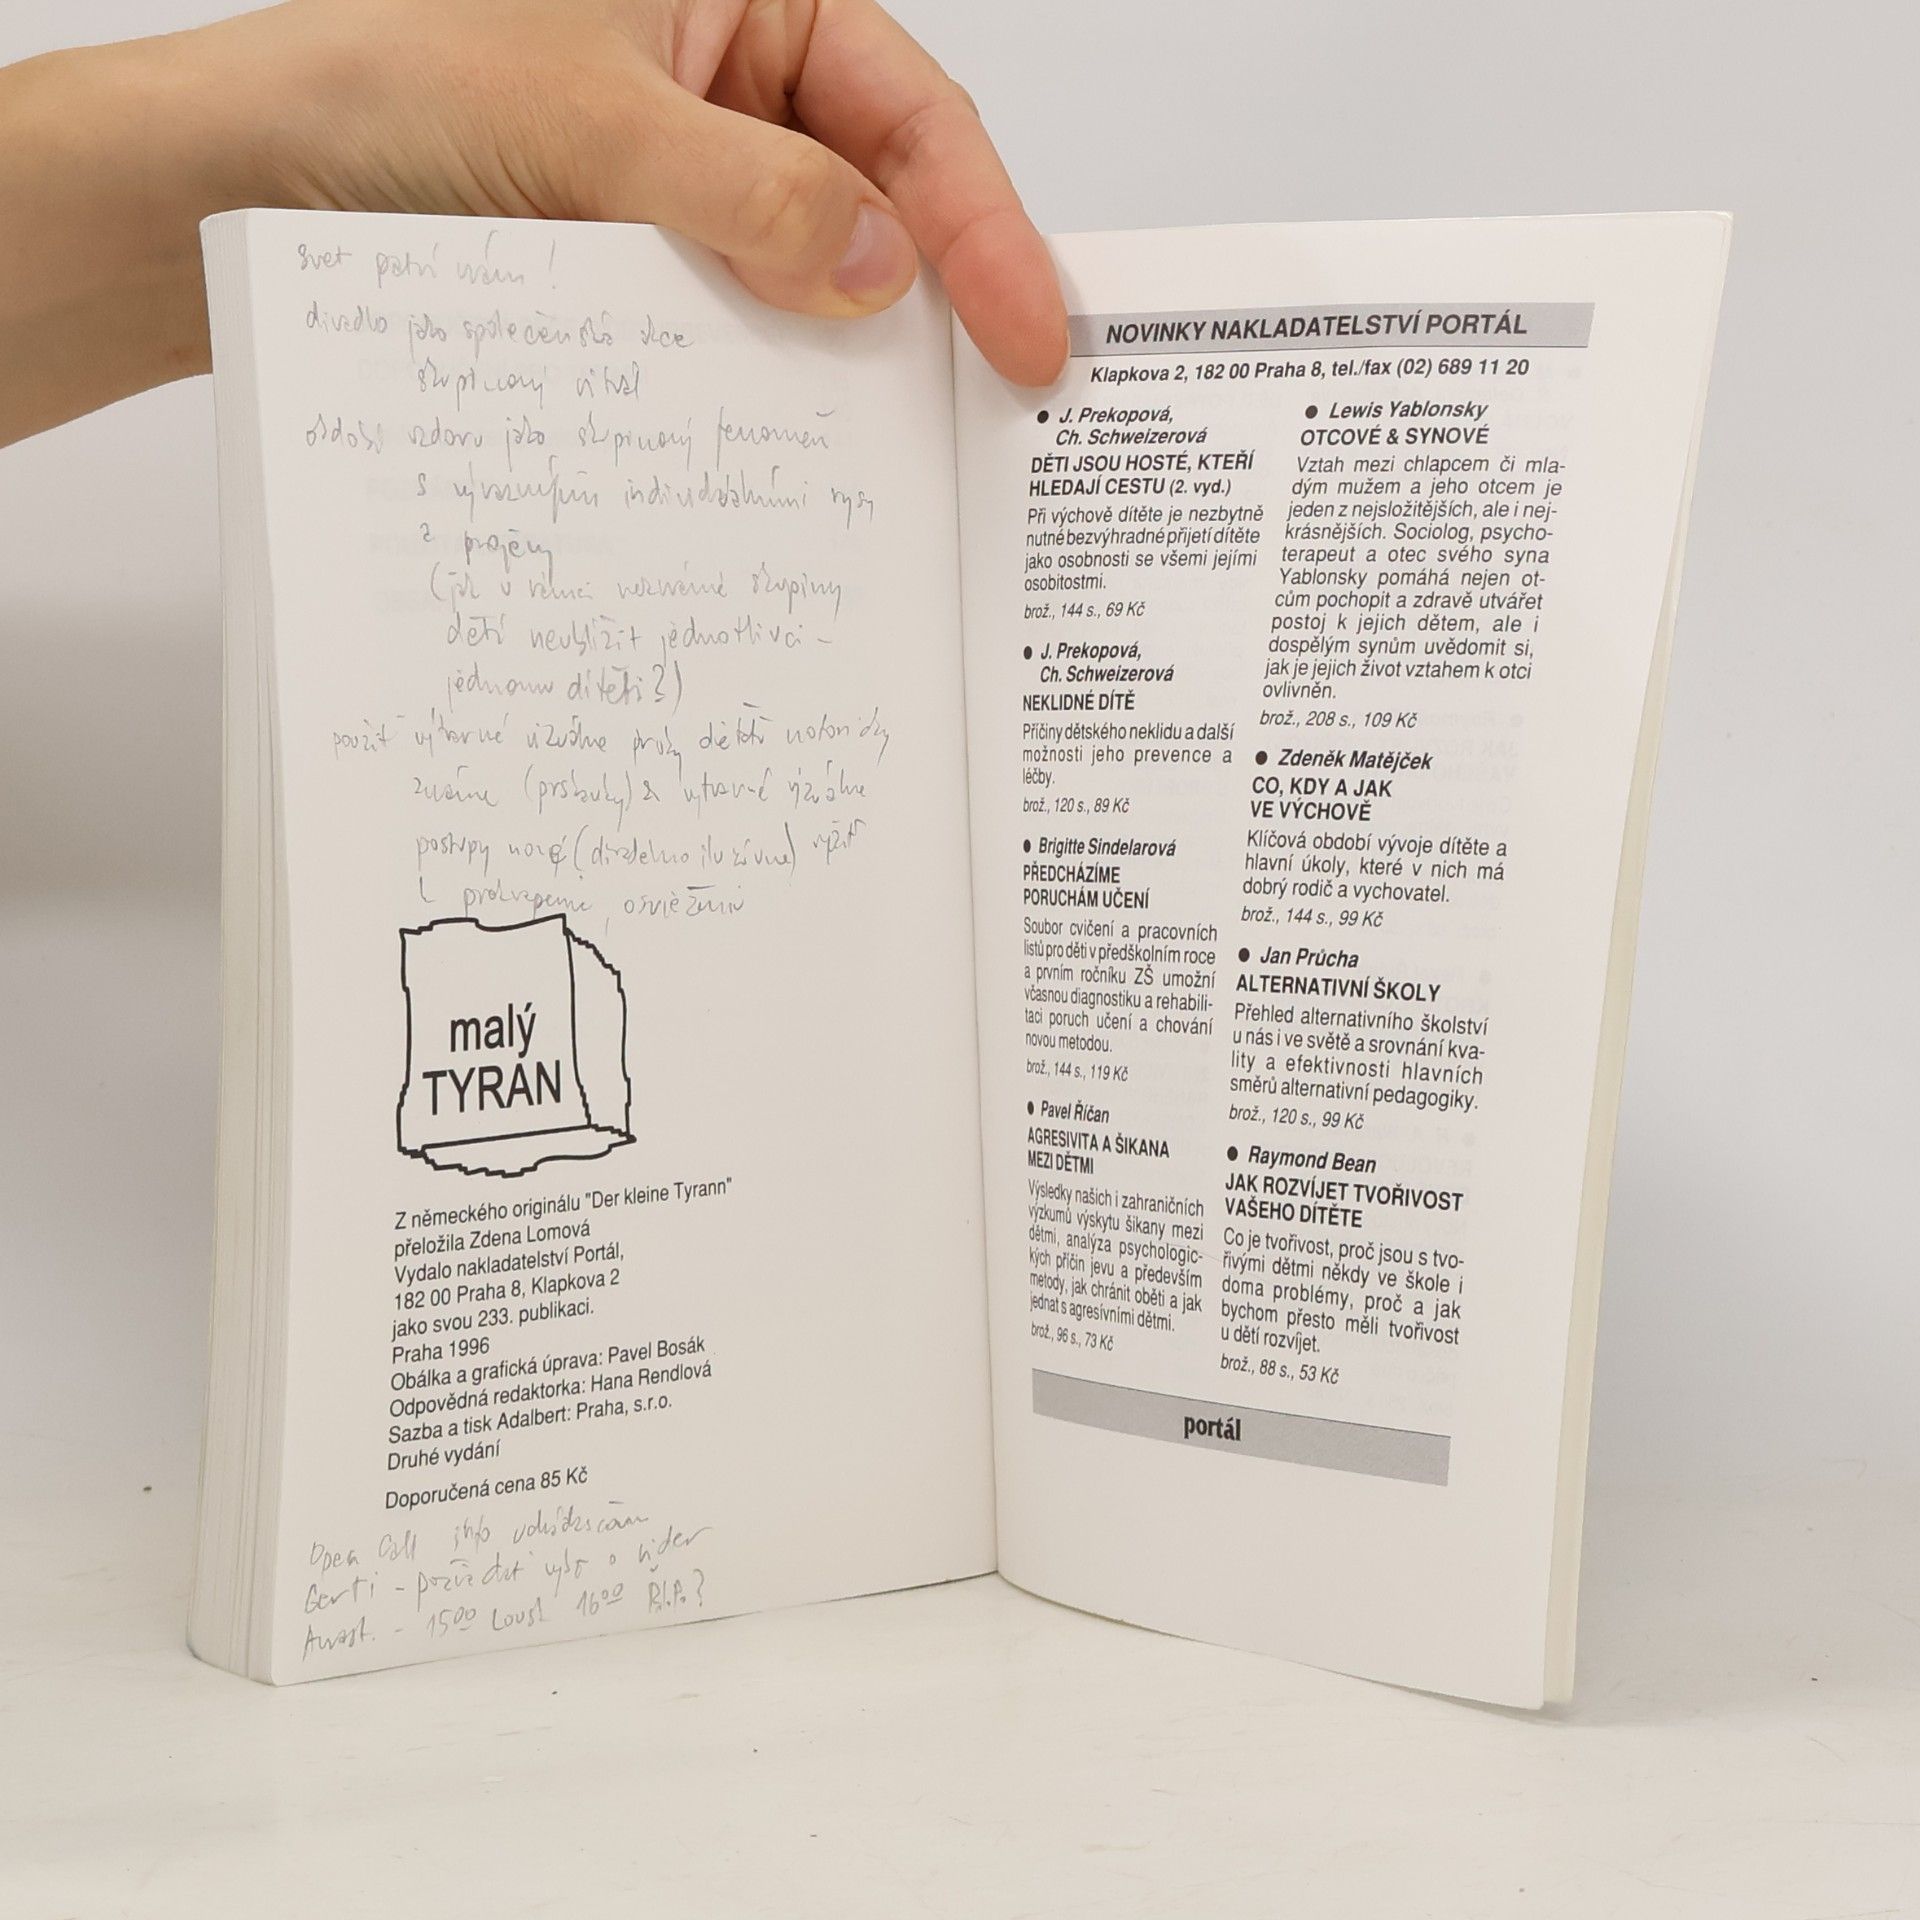 svet patří nám!
divadlo jako společenská akce
skupinový rituál
období vzdoru jako skupinový fenomén
s výraznými individuálními rysy
a projevy
(jak v rámci nezvané skupiny
dětí neublížit jednotlivci -
jednomu dítěti?)
použít výtvarné vizuálne prvky notoricky
známe výtvarné vizuálne
postupy nové
prekvapenie, osvieženie
malý
TYRAN
Z německého originálu "Der kleine Tyrann"
přeložila Zdena Lomová
Vydalo nakladatelství Portál,
182 00 Praha 8, Klapkova 2
jako svou 233. publikaci.
Praha 1996
Obálka a grafická úprava: Pavel Bosák
Odpovědná redaktorka: Hana Rendlová
Sazba a tisk Adalbert: Praha, s.r.o.
Druhé vydání
Doporučená cena 85 Kč
Open Call
Gerti -
- 15 00 16 00
NOVINKY NAKLADATELSTVÍ PORTÁL
Klapkova 2, 182 00 Praha 8, tel./fax (02) 689 11 20
● J. Prekopová,
Ch. Schweizerová
DĚTI JSOU HOSTÉ, KTEŘÍ
HLEDAJÍ CESTU (2. vyd.)
Při výchově dítěte je nezbytně
nutné bezvýhradné přijetí dítěte
jako osobnosti se všemi jejími
osobitostmi.
brož., 144 s., 69 Kč
● J. Prekopová,
Ch. Schweizerová
NEKLIDNÉ DÍTĚ
Příčiny dětského neklidu a další
možnosti jeho prevence a
léčby.
brož., 120 s., 89 Kč
● Brigitte Sindelarová
PŘEDCHÁZÍME
PORUCHÁM UČENÍ
Soubor cvičení a pracovních
listů pro děti v předškolním roce
a prvním ročníku ZŠ umožní
včasnou diagnostiku a rehabili-
taci poruch učení a chování
novou metodou.
brož., 144 s., 119 Kč
● Pavel Říčan
AGRESIVITA A ŠIKANA
MEZI DĚTMI
Výsledky našich i zahraničních
výzkumů výskytu šikany mezi
dětmi, analýza psychologic-
kých příčin jevu a především
metody, jak chránit oběti a jak
jednat s agresívními dětmi.
brož., 96 s., 73 Kč
● Lewis Yablonsky
OTCOVÉ & SYNOVÉ
Vztah mezi chlapcem či mla-
dým mužem a jeho otcem je
jeden z nejsložitějších, ale i nej-
krásnějších. Sociolog, psycho-
terapeut a otec svého syna
Yablonsky pomáhá nejen ot-
cům pochopit a zdravě utvářet
postoj k jejich dětem, ale i
dospělým synům uvědomit si,
jak je jejich život vztahem k otci
ovlivněn.
brož., 208 s., 109 Kč
● Zdeněk Matějček
CO, KDY A JAK
VE VÝCHOVĚ
Klíčová období vývoje dítěte a
hlavní úkoly, které v nich má
dobrý rodič a vychovatel.
brož., 144 s., 99 Kč
● Jan Průcha
ALTERNATIVNÍ ŠKOLY
Přehled alternativního školství
u nás i ve světě a srovnání kva-
lity a efektivnosti hlavních
směrů alternativní pedagogiky.
brož., 120 s., 99 Kč
● Raymond Bean
JAK ROZVÍJET TVOŘIVOST
VAŠEHO DÍTĚTE
Co je tvořivost, proč jsou s tvo-
řivými dětmi někdy ve škole i
doma problémy, proč a jak
bychom přesto měli tvořivost
u dětí rozvíjet.
brož., 88 s., 53 Kč
portál